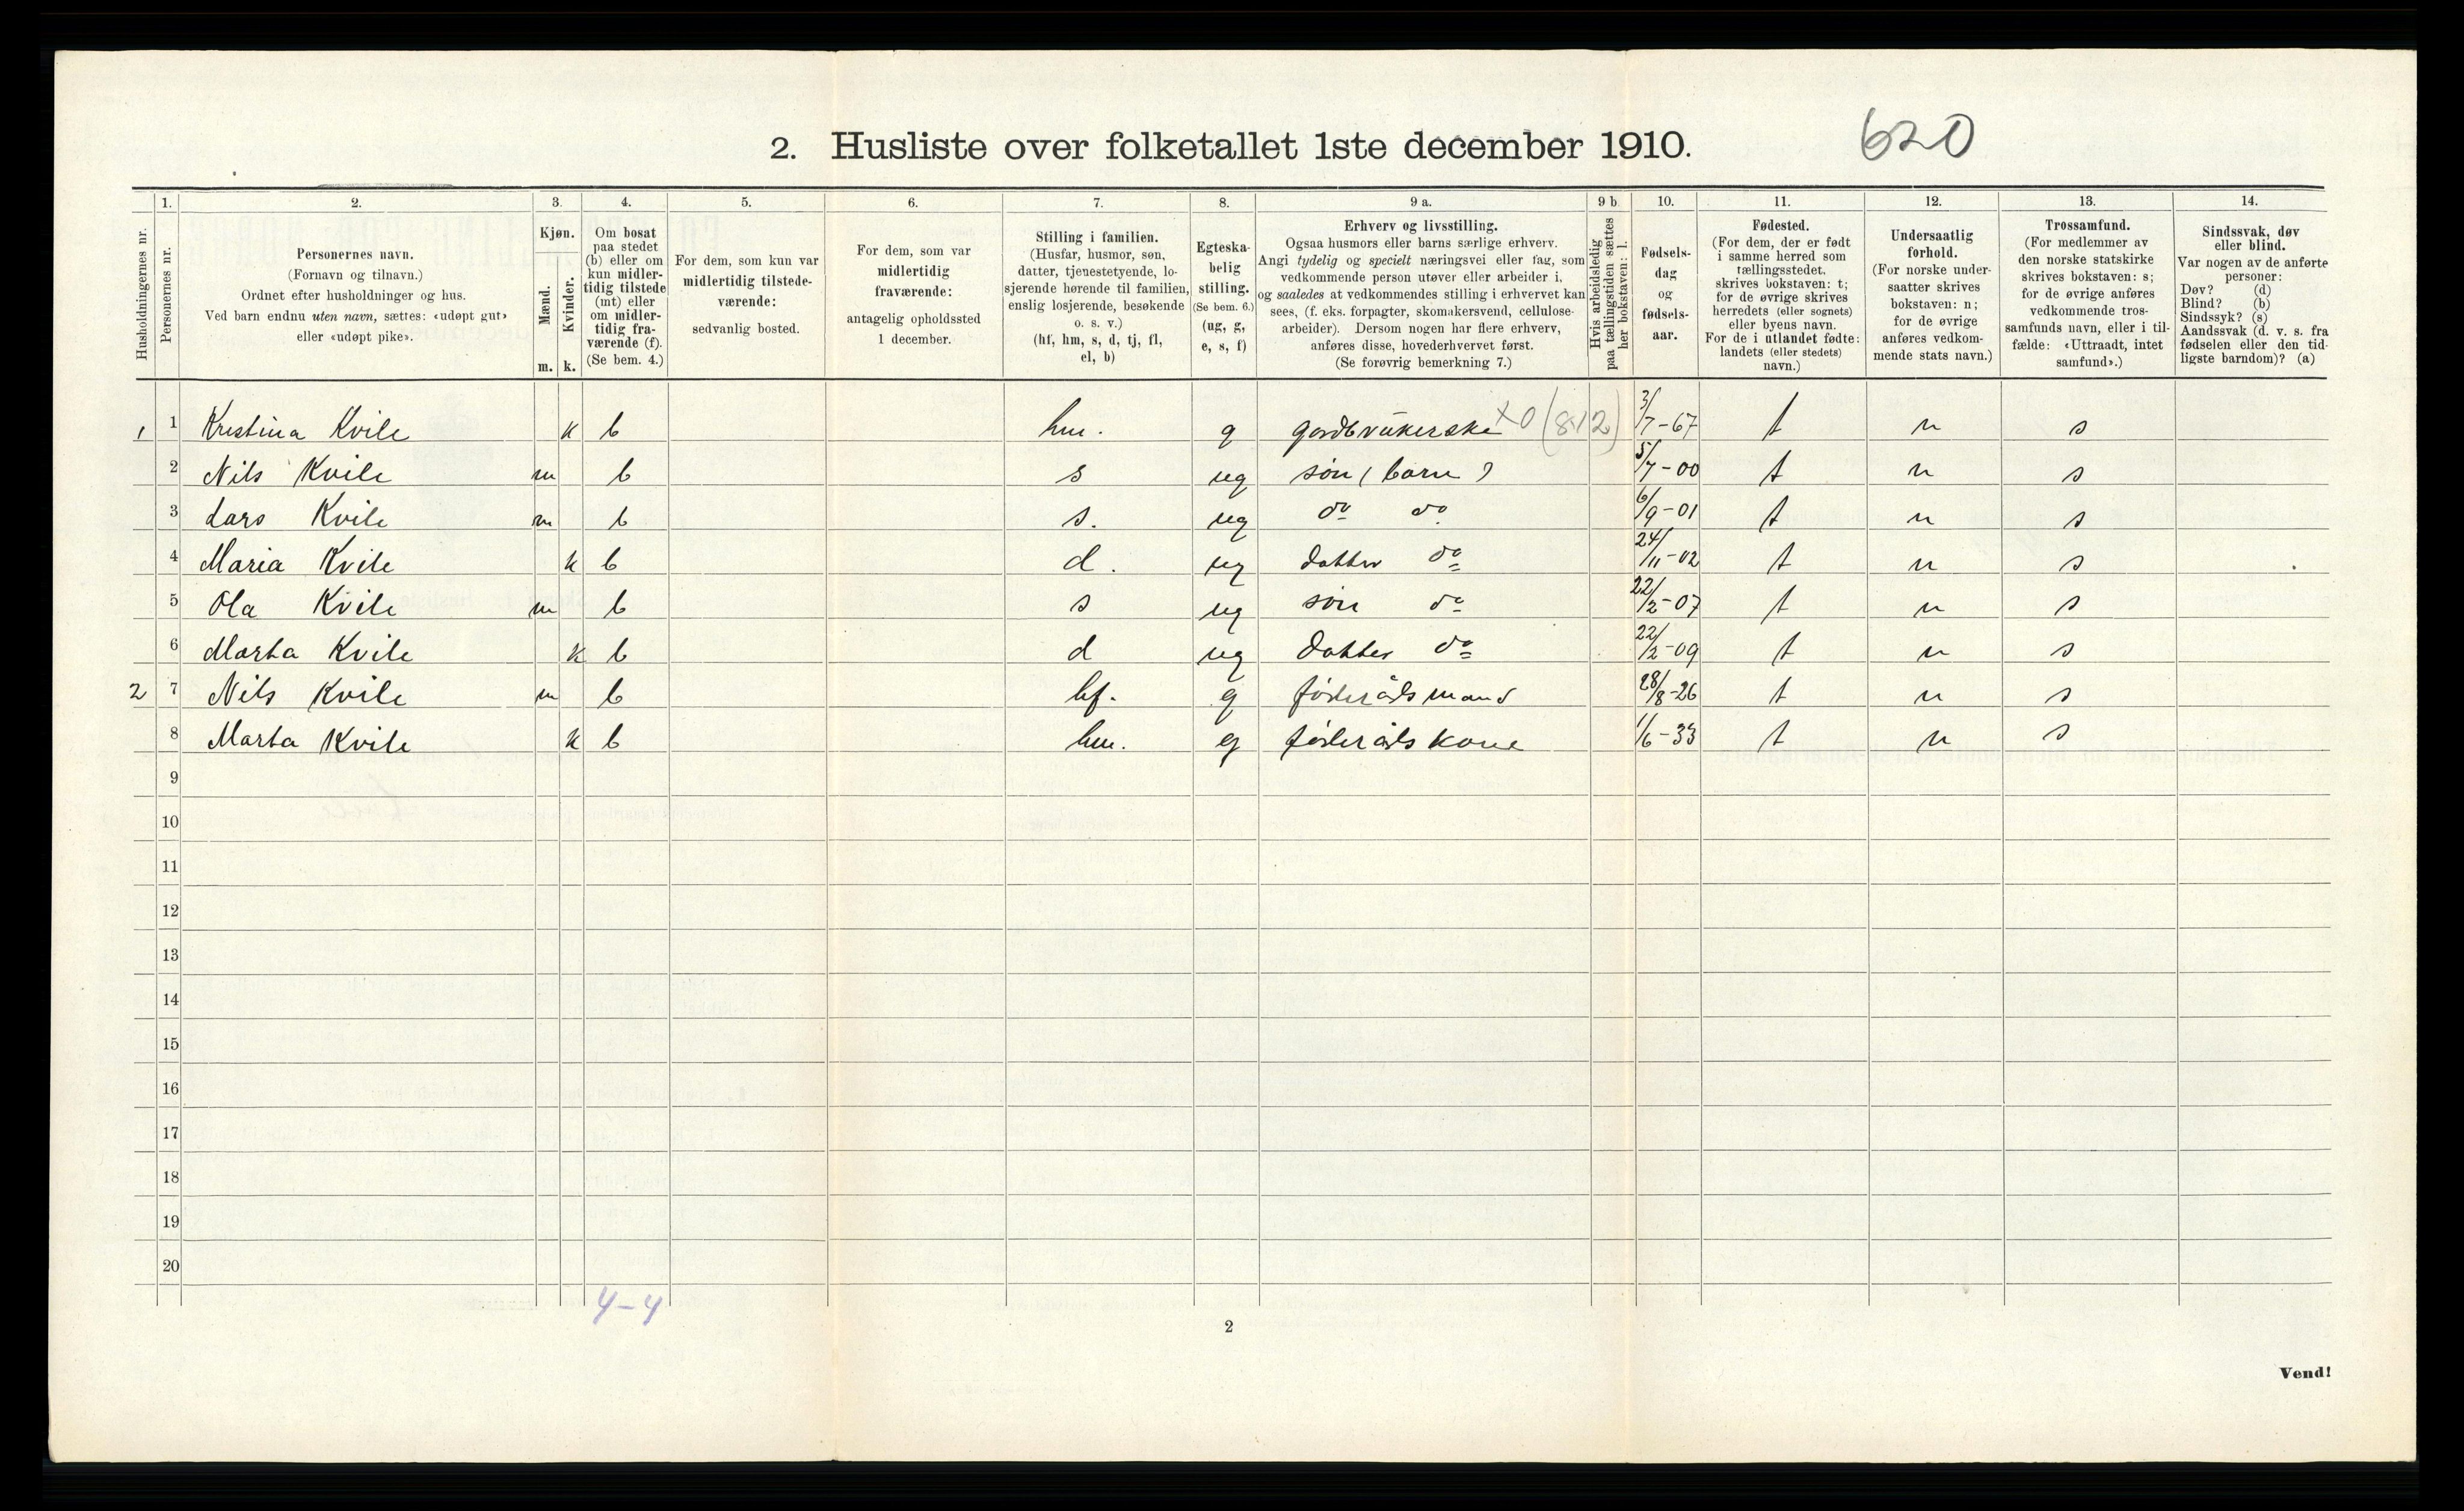 2. Husliste over folketallet 1ste december 1910. 620
1. 2. 3. 4. 5. 6. 7. 8. 9 a. 9 b. 10. 11. 12. 13. 14.
Husholdningernes nr.
Personernes nr.
Personernes navn.
(Fornavn og tilnavn.)
Ordnet efter husholdninger og hus.
Ved barn endnu uten navn, sættes: «udøpt gut»
eller «udøpt pike».
Kjøn.
Mænd.
Kvinder.
m. k.
Om bosat
paa stedet
(b) eller om
kun midler-
tidig tilstede
(mt) eller
om midler-
tidig fra-
værende (f).
(Se bem. 4.)
For dem, som kun var
midlertidig tilstede-
værende:
sedvanlig bosted.
For dem, som var
midlertidig
fraværende:
antagelig opholdssted
1 december.
Stilling i familien.
(Husfar, husmor, søn,
datter, tjenestetyende, lo-
sjerende hørende til familien,
enslig losjerende, besøkende
o. s. v.)
(hf, hm, s, d, tj, fl,
el, b)
Egteska-
belig
stilling.
(Se bem. 6.)
(ug, g,
e, s, f)
Erhverv og livsstilling.
Ogsaa husmors eller barns særlige erhverv.
Angi tydelig og specielt næringsvei eller fag, som
vedkommende person utøver eller arbeider i,
og saaledes at vedkommendes stilling i erhvervet kan
sees, (f. eks. forpagter, skomakersvend, cellulose-
arbeider). Dersom nogen har flere erhverv,
anføres disse, hovederhvervet først.
(Se forøvrig bemerkning 7.)
Hvis arbeidsledig
paa tællingstiden sættes
her bokstaven: l.
Fødsels-
dag
og
fødsels-
aar.
Fødested.
(For dem, der er født
i samme herred som
tællingsstedet,
skrives bokstaven: t;
for de øvrige skrives
herredets (eller sognets)
eller byens navn.
For de i utlandet fødte:
landets (eller stedets)
navn.)
Undersaatlig
forhold.
(For norske under-
saatter skrives
bokstaven: n;
for de øvrige
anføres vedkom-
mende stats navn.)
Trossamfund.
(For medlemmer av
den norske statskirke
skrives bokstaven: s;
for de øvrige anføres
vedkommende tros-
samfunds navn, eller i til-
fælde: «Uttraadt, intet
samfund».)
Sindssvak, døv
eller blind.
Var nogen av de anførte
personer:
Døv? (d)
Blind? (b)
Sindssyk? (s)
Aandssvak (d. v. s. fra
fødselen eller den tid-
ligste barndom)? (a)
1 1 Kristina Kvile k b hm. g gardbrukerske X0 (812) 3/7-67 t n s
2 Nils Kvile m b s ug søn (barn) 5/7-00 t n s
3 Lars Kvile m b s. ug do do 6/9-01 t n s
4 Maria Kvile k b d. ug datter do 24/11-02 t n s
5 Ola Kvile m b s ug søn do 22/2-07 t n s
6 Marta Kvile k b d ug datter do 22/2-09 t n s
2 7 Nils Kvile m b hf. g føderådsmand 28/8-26 t n s
8 Marta Kvile k b hm. g føderådskone 1/6-33 t n s
9
10
11
12
13
14
15
16
17
18
19
20
4-4
2
Vend!